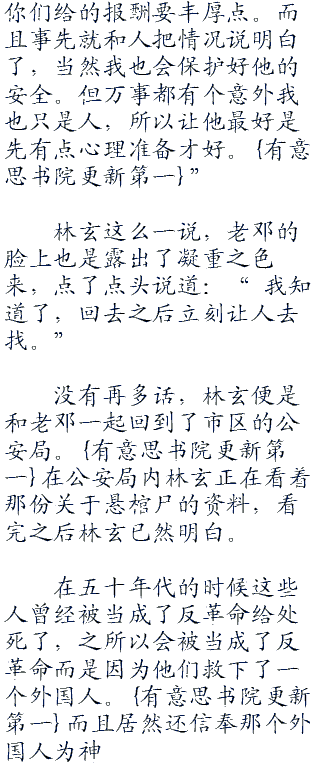 你们给的报酬要丰厚点。而
且事先就和人把情况说明白
了，当然我也会保护好他的
安全。但万事都有个意外我
也只是人，所以让他最好是
先有点心理准备才好。{有意
思书院更新第一}”
林玄这么一说，老邓的
脸上也是露出了凝重之色
来，点了点头说道：“ 我知
道了，回去之后立刻让人去
找。”
没有再多话，林玄便是
和老邓一起回到了市区的公
安局。{有意思书院更新第
一}在公安局内林玄正在看着
那份关于悬棺尸的资料，看
完之后林玄已然明白。
在五十年代的时候这些
人曾经被当成了反革命给处
死了，之所以会被当成了反
革命而是因为他们救下了一
个外国人。{有意思书院更新
第一}而且居然还信奉那个外
国人为神